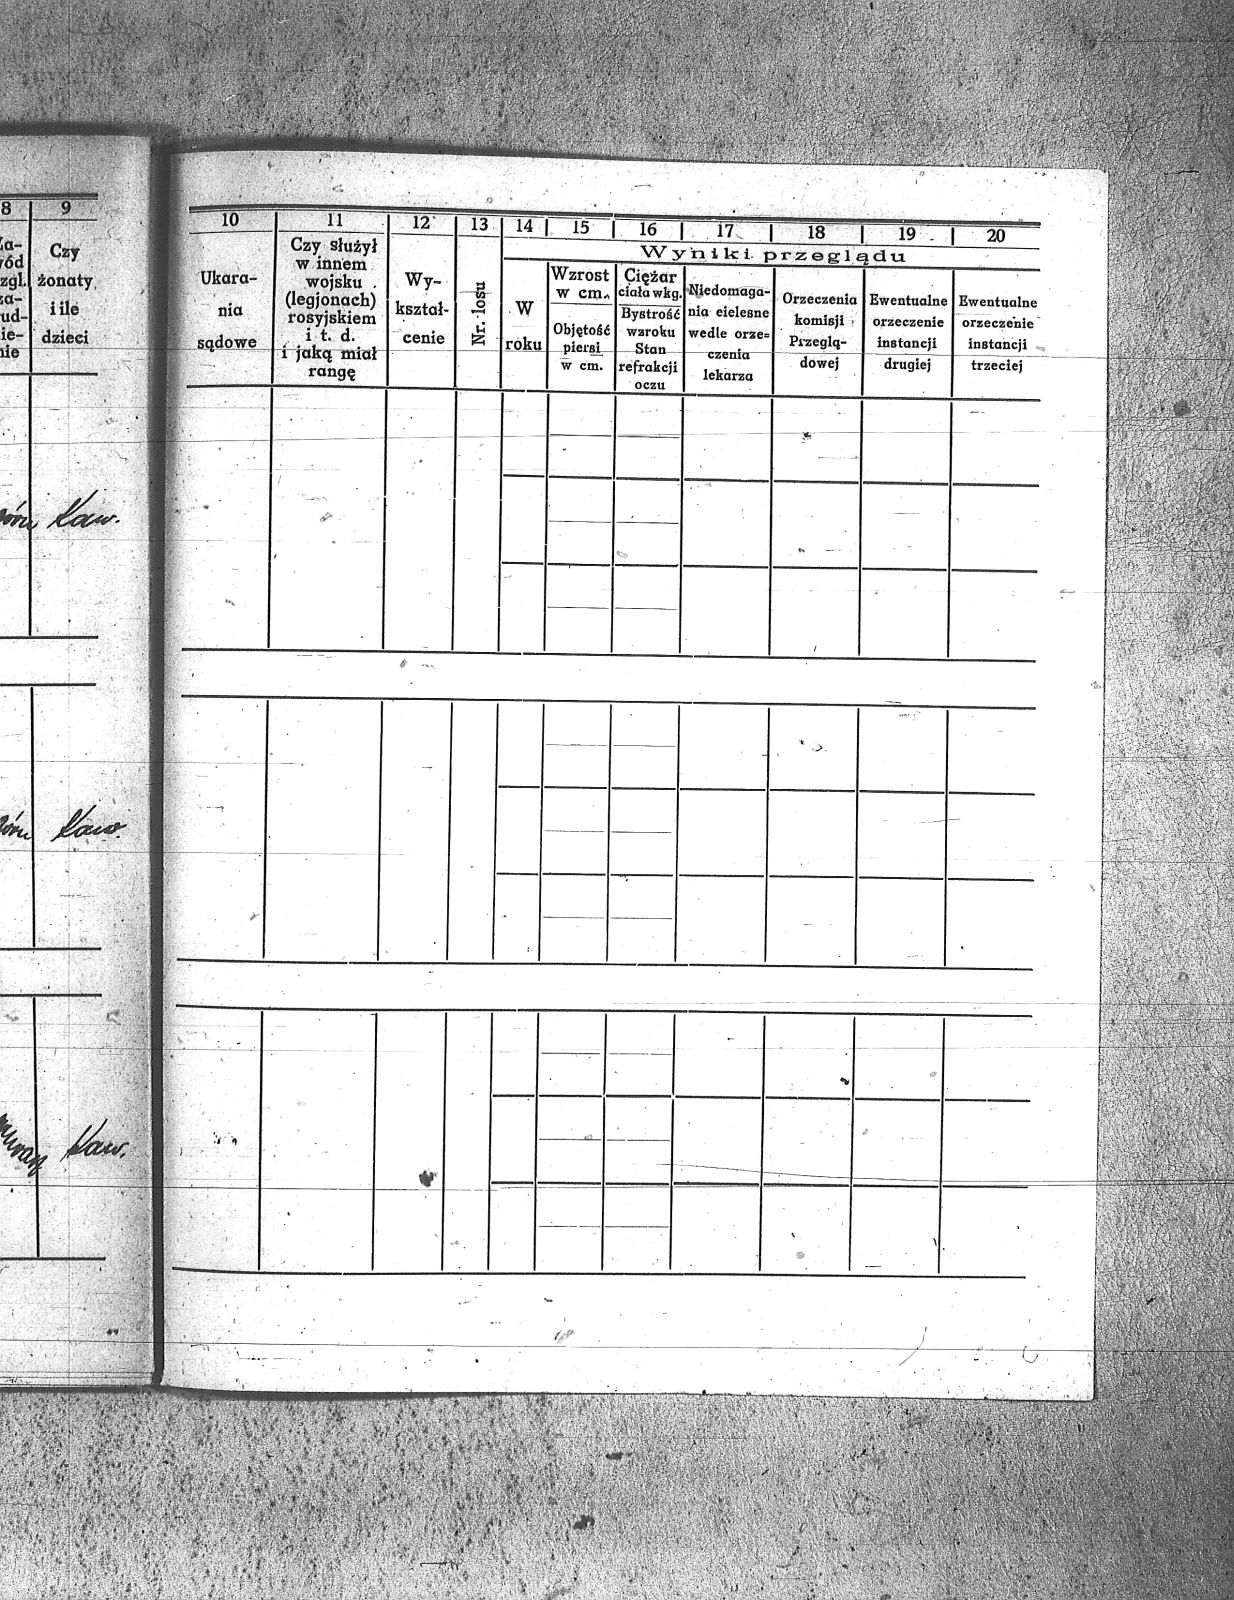 8 9
Czy
żonaty
i ile
dzieci
Kaw.
Kaw.
Kaw.
10 11 12 13 14 15 16 17 18 19 20
Ukara-
nia
sądowe
Czy służył
w innem
wojsku
(legjonach)
rosyjskiem
i t. d.
i jaką miał
rangę
Wy-
kształ-
cenie
Nr. losu
Wyniki przeglądu
W
roku
Wzrost
w cm.
Objętość
piersi
w cm.
Ciężar
ciała w kg.
Bystrość
wzroku
Stan
refrakcji
oczu
Niedomaga-
nia cielesne
wedle orze=
czenia
lekarza
Orzeczenia
komisji
Przeglą-
dowej
Ewentualne
orzeczenie
instancji
drugiej
Ewentualne
orzeczenie
instancji
trzeciej